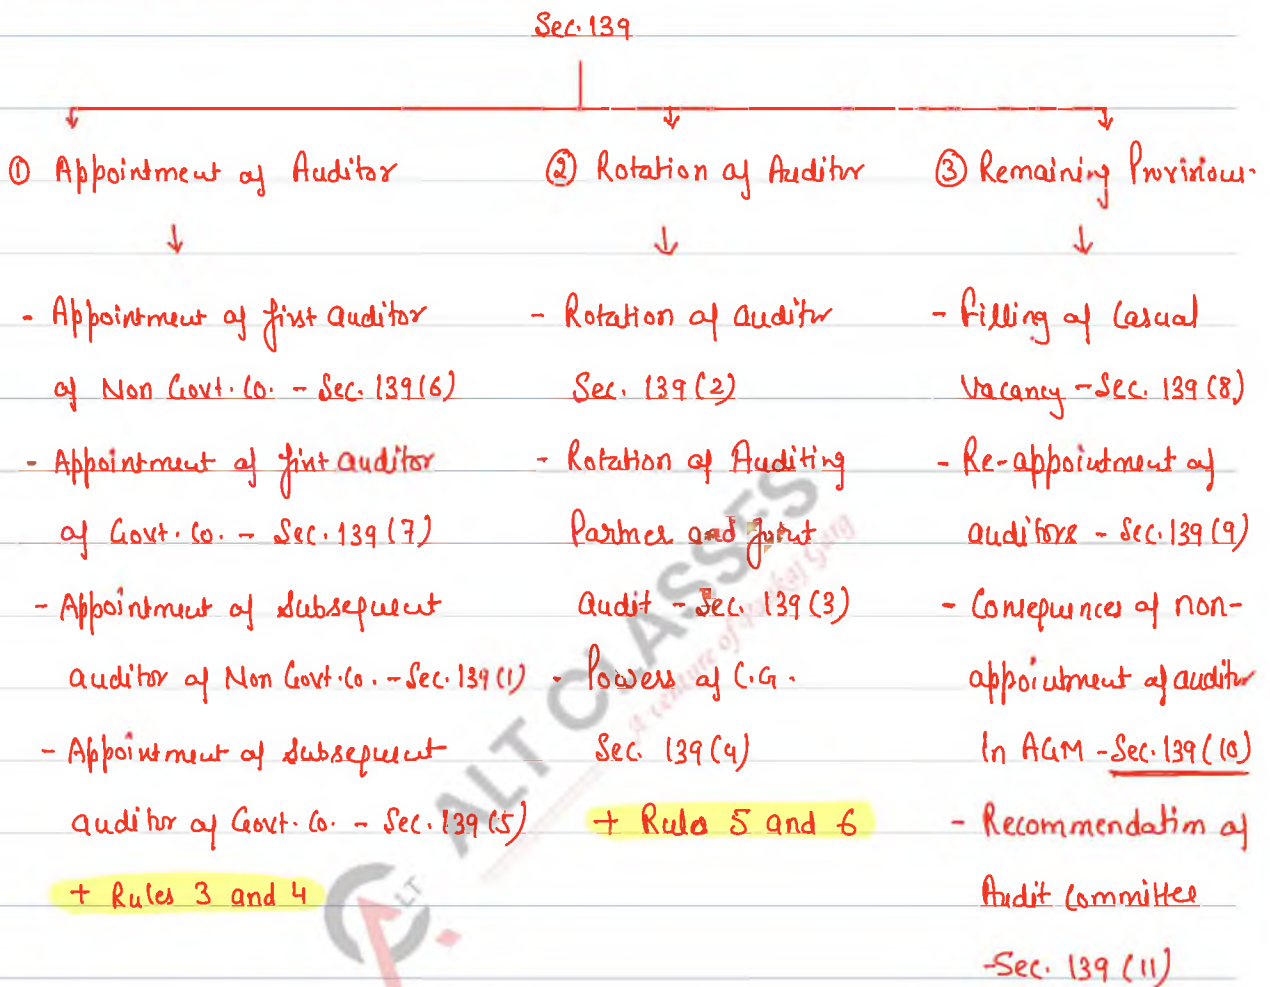 Sec. 139
① Appointment of Auditor
② Rotation of Auditor
③ Remaining Provisions.
- Appointment of first auditor
of Non Govt. Co. - Sec. 139(6)
- Appointment of first auditor
of Govt. Co. - Sec. 139(7)
- Appointment of Subsequent
auditor of Non Govt. Co. - Sec. 139(1)
- Appointment of Subsequent
auditor of Govt. Co. - Sec. 139(5)
+ Rules 3 and 4
- Rotation of auditor
Sec. 139(2)
- Rotation of Auditing
Partner and Joint
audit - Sec. 139(3)
- Powers of C.G.
Sec. 139(4)
+ Rules 5 and 6
- Filling of Casual
Vacancy - Sec. 139(8)
- Re-appointment of
auditors - Sec. 139(9)
- Consequences of non-
appointment of auditor
in AGM - Sec. 139(10)
- Recommendation of
Audit Committee
- Sec. 139(11)
ALT CLASSES
A venture of Pankaj Garg
ALT